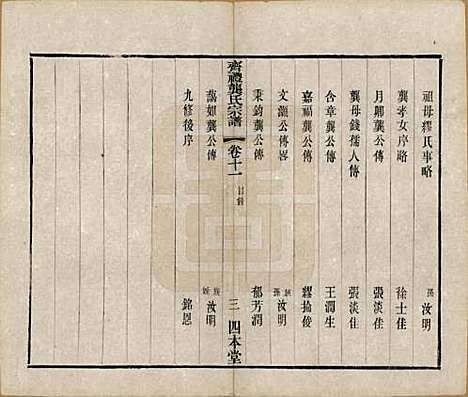 祖母繆氏事略 孫 汝明
龔孝女序略 徐士佳
月卿龔公傳 張淡佳
龔母錢孺人傳 張淡佳
含章龔公傳 王潤生
嘉福龔公傳 繆掄俊
文灝公傳畧 孫 汝明
秉鈞龔公傳 郁芳潤
齊禮龔氏宗譜 卷十一 目錄 三 四本堂
龔公傳 族 汝明
九修後序 銘恩